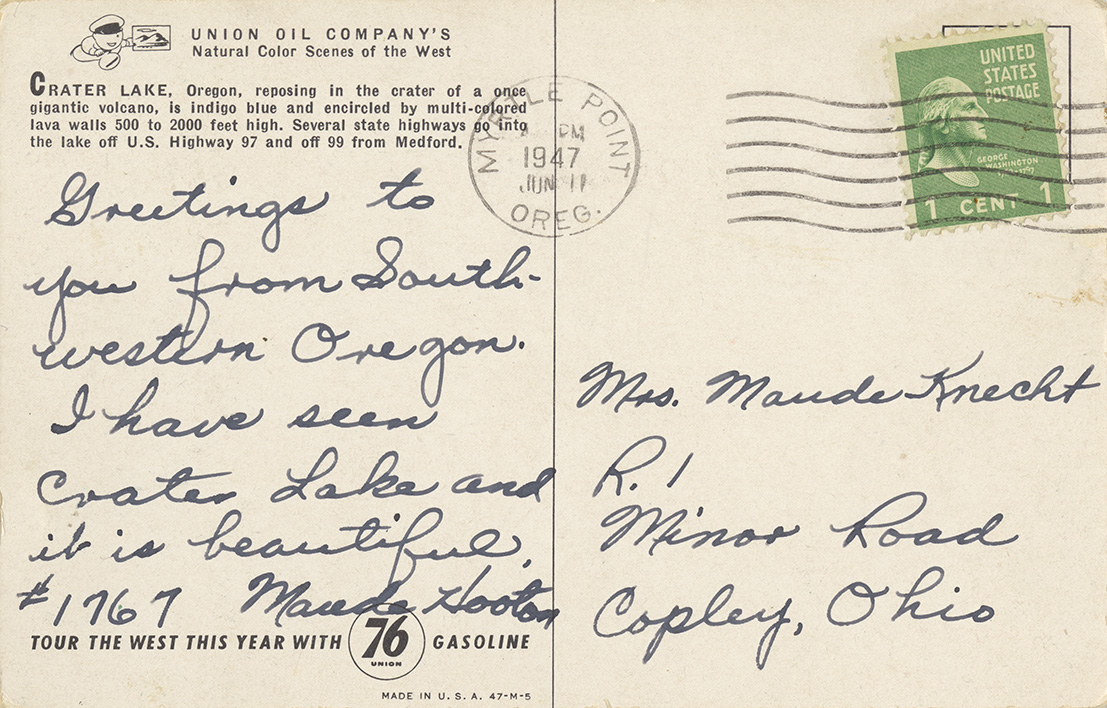 UNION OIL COMPANY'S
Natural Color Scenes of the West
CRATER LAKE, Oregon, reposing in the crater of a once
gigantic volcano, is indigo blue and encircled by multi-colored
lava walls 500 to 2000 feet high. Several state highways go into
the lake off U.S. Highway 97 and off 99 from Medford.
Greetings to
you from South-
western Oregon.
I have seen
Crater Lake and
it is beautiful.
#1767 Maude Hooton
TOUR THE WEST THIS YEAR WITH 76 GASOLINE
UNION
MADE IN U.S.A. 47-M-5
MYRTLE POINT
PM
1947
JUN 11
OREG.
UNITED
STATES
POSTAGE
GEORGE
WASHINGTON
1 CENT 1
Mrs. Maude Knecht
R. 1
Minor Road
Copley, Ohio